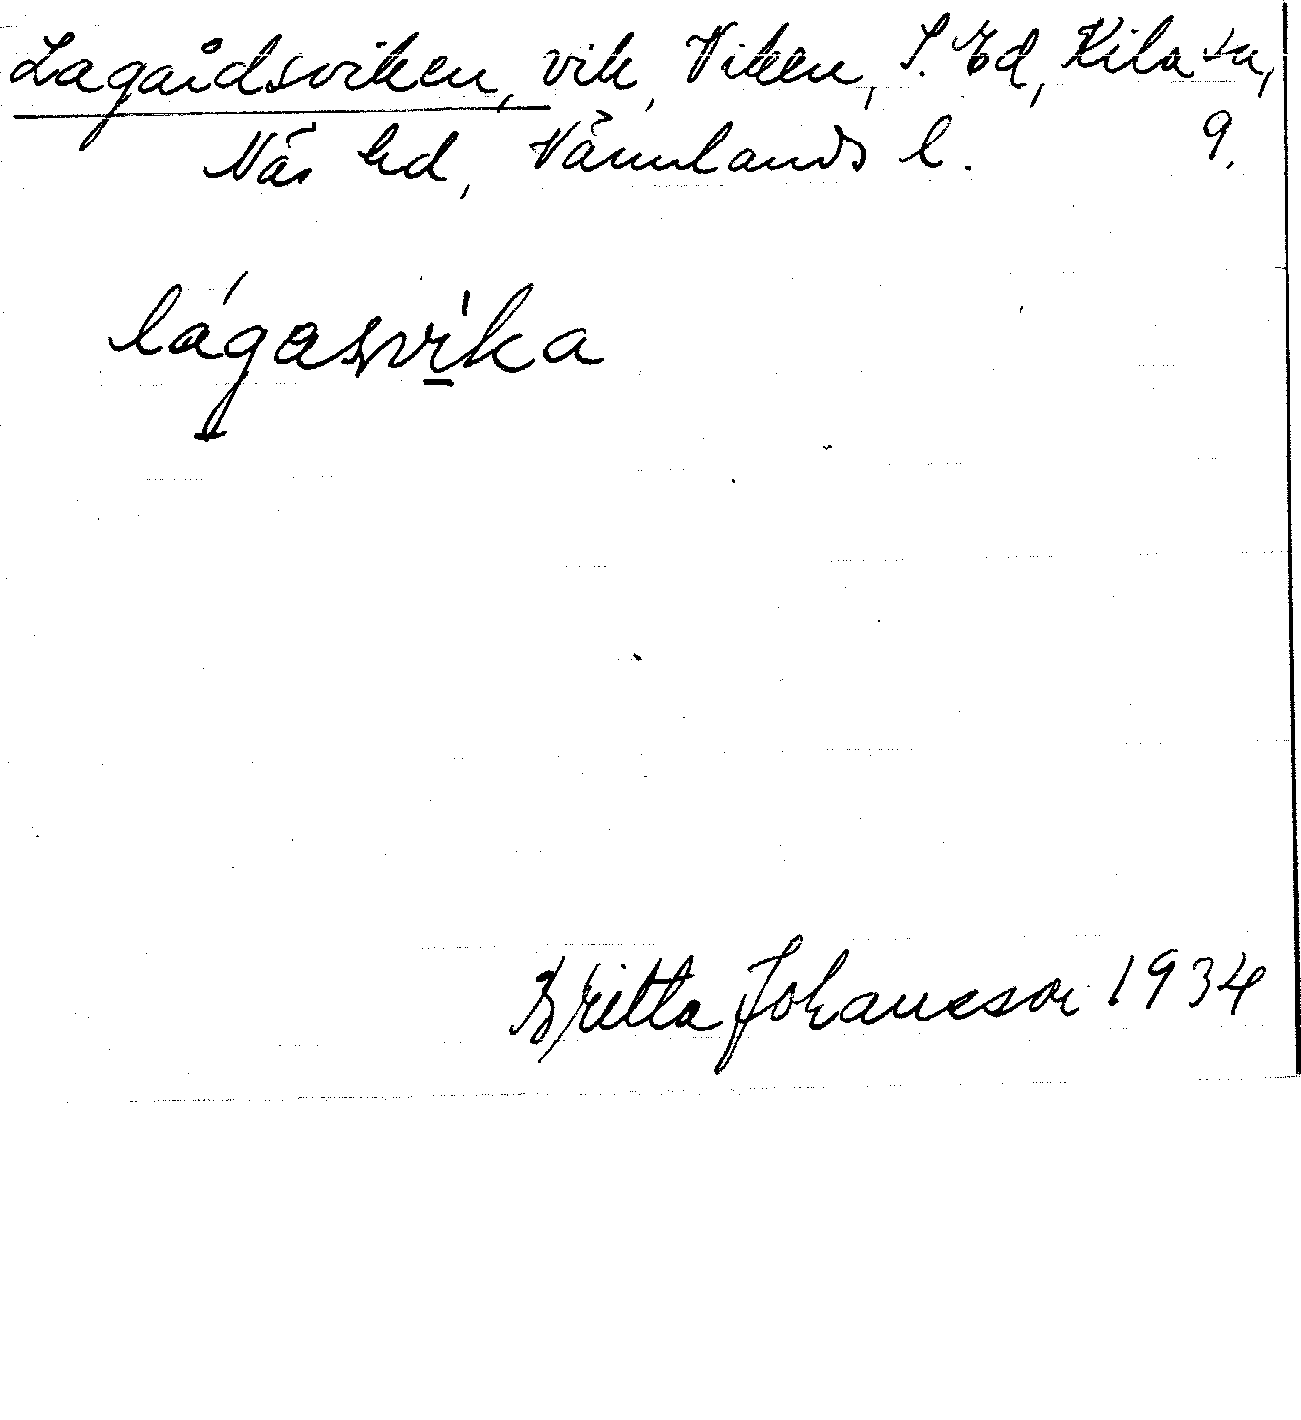 Lagårdsviken, vik, Viken, S. Ed, Kila sn,
Näs hd, Värmlands l. 9.
lágasvika
Britta Johansson 1934